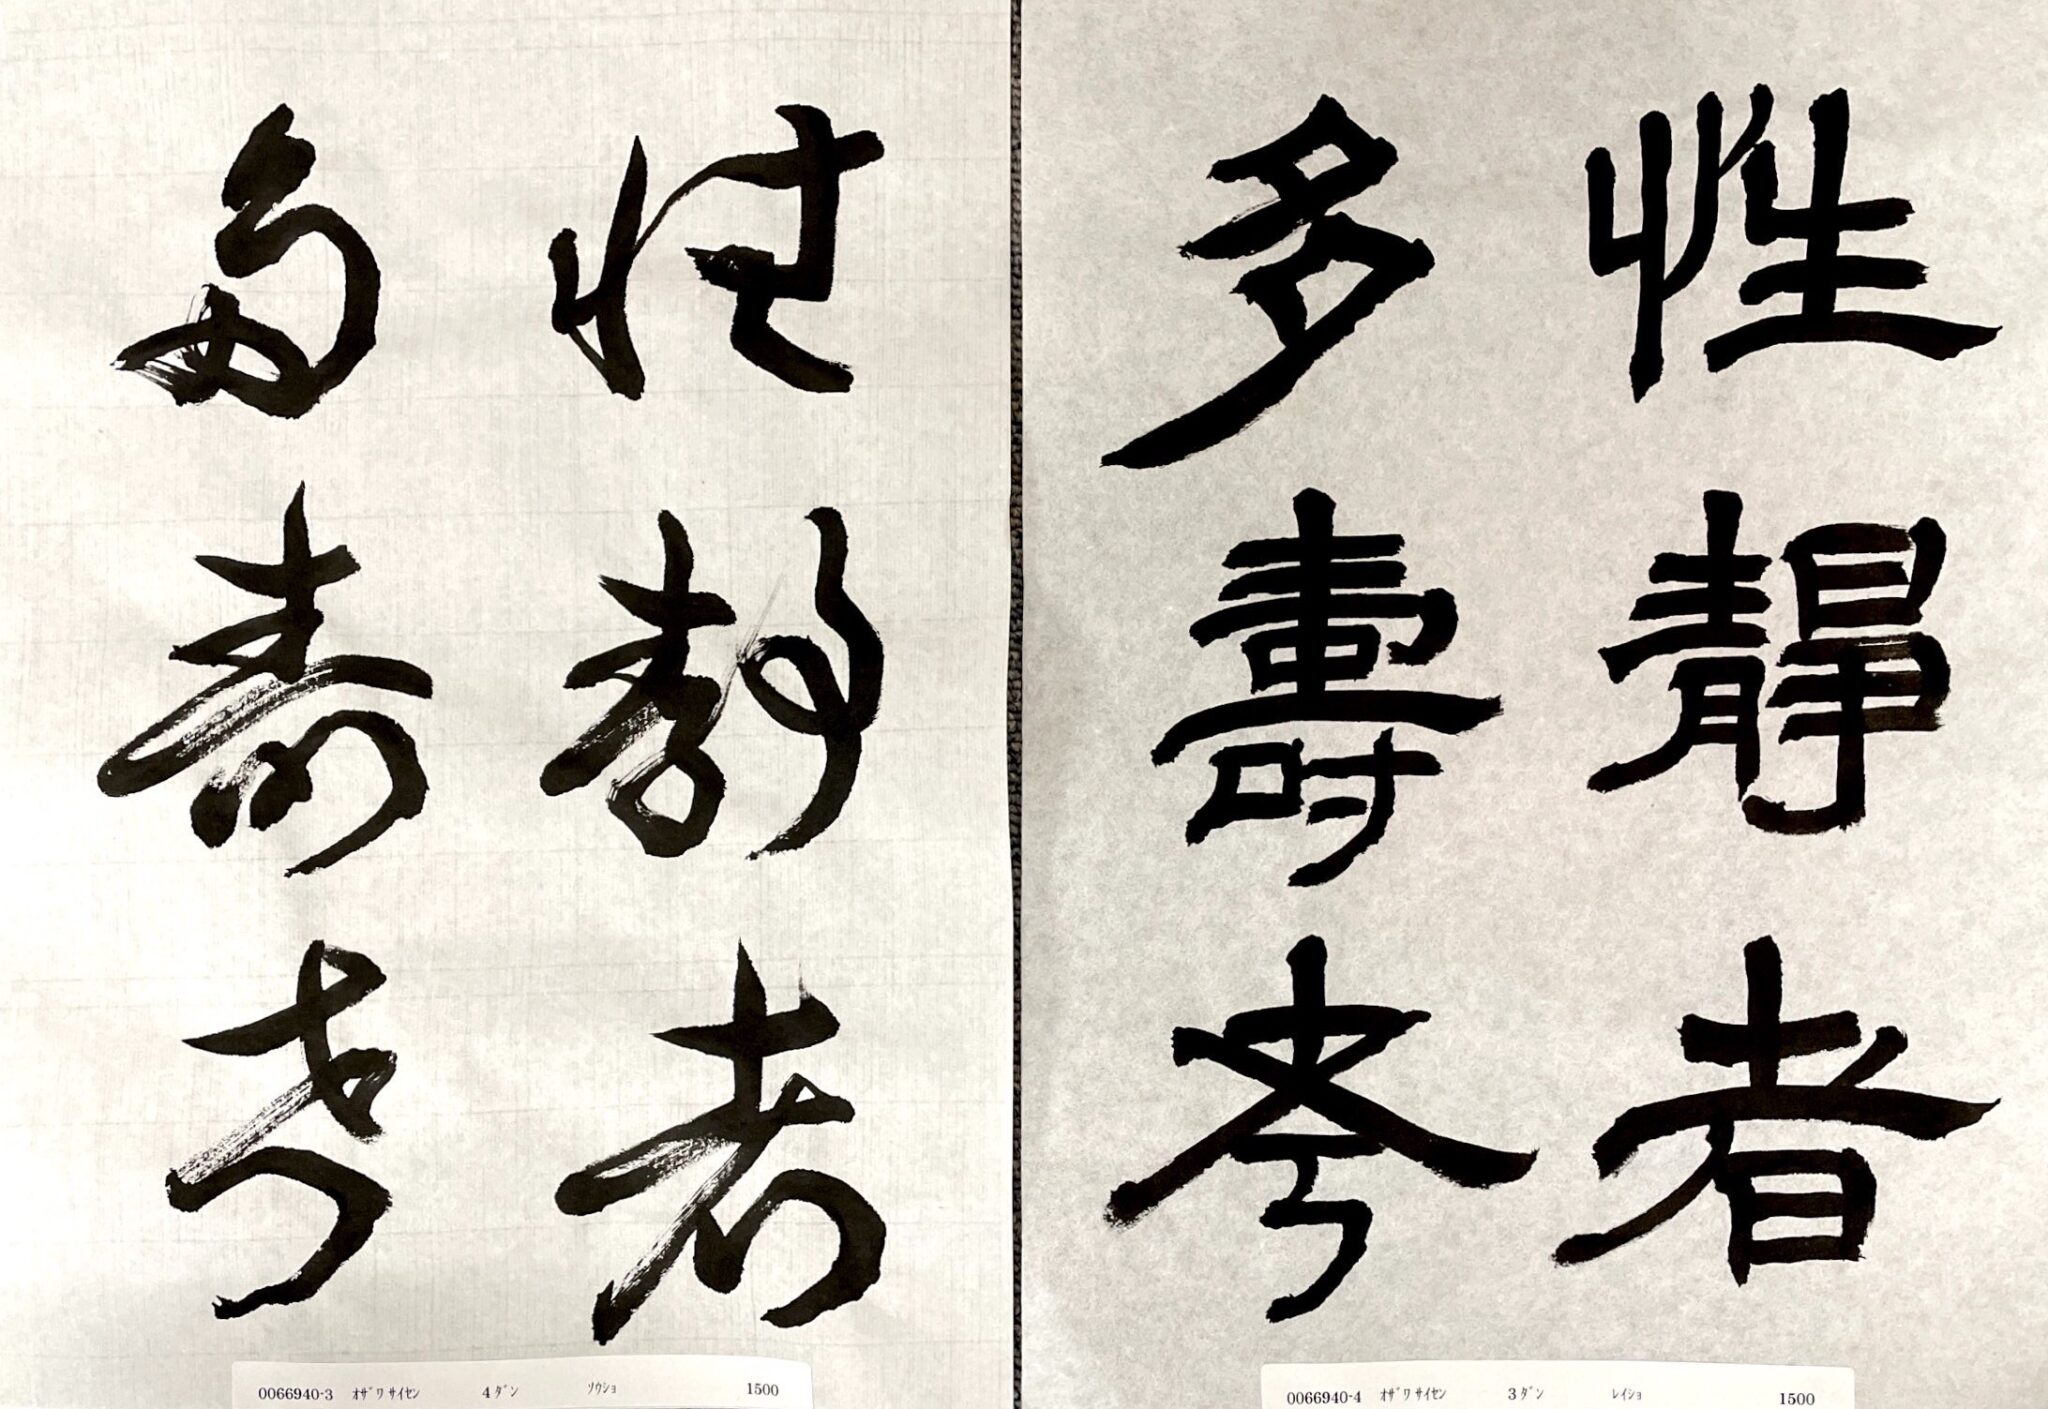 性静者
多寿考
0066940-3 ｵｻﾞﾜ ｻｲｾﾝ 4ﾀﾞﾝ ｿｳｼｮ 1500
性靜者
多壽考
0066940-4 ｵｻﾞﾜ ｻｲｾﾝ 3ﾀﾞﾝ ﾚｲｼｮ 1500